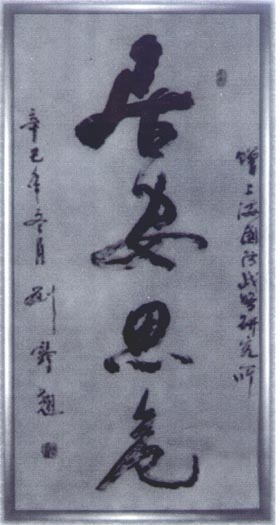 赠上海国防战略研究所
居安思危
辛巳年冬月 刘